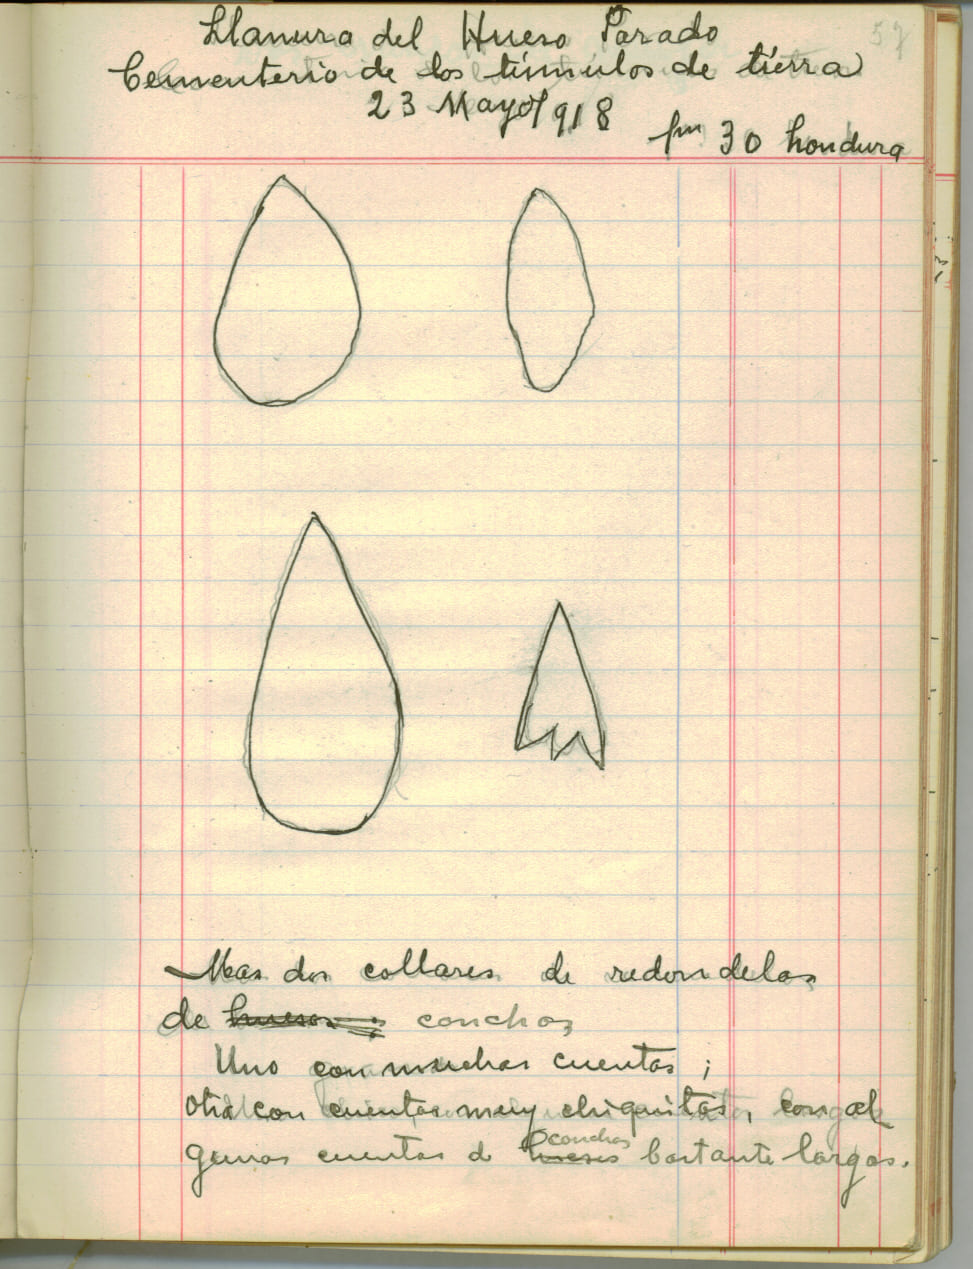 57
Llanura del Hueso Parado
Cementerio de los túmulos de tierra
23 Mayo/918
pm 30 hondura
Mas dos collares de redondelas
de huesos conchas
Uno con muchas cuentas ;
otra con cuentas muy chiquitas, con al
conchas
gunas cuentas d huesos bastante largas.